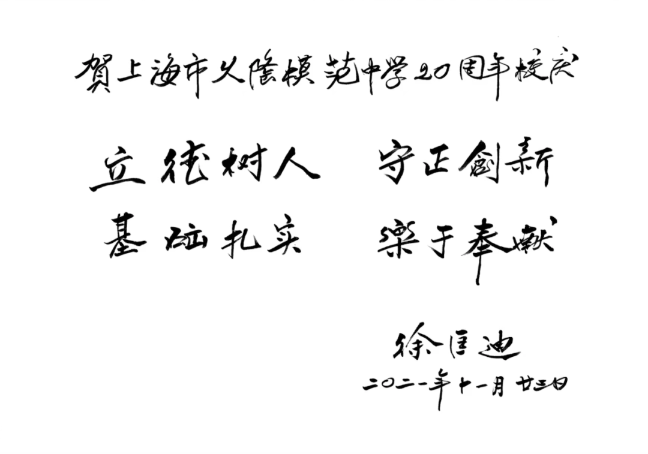 賀上海市久隆模范中学20周年校庆
立德树人 守正創新
基础扎实 樂于奉献
徐匡迪
二〇二一年十一月廿三日